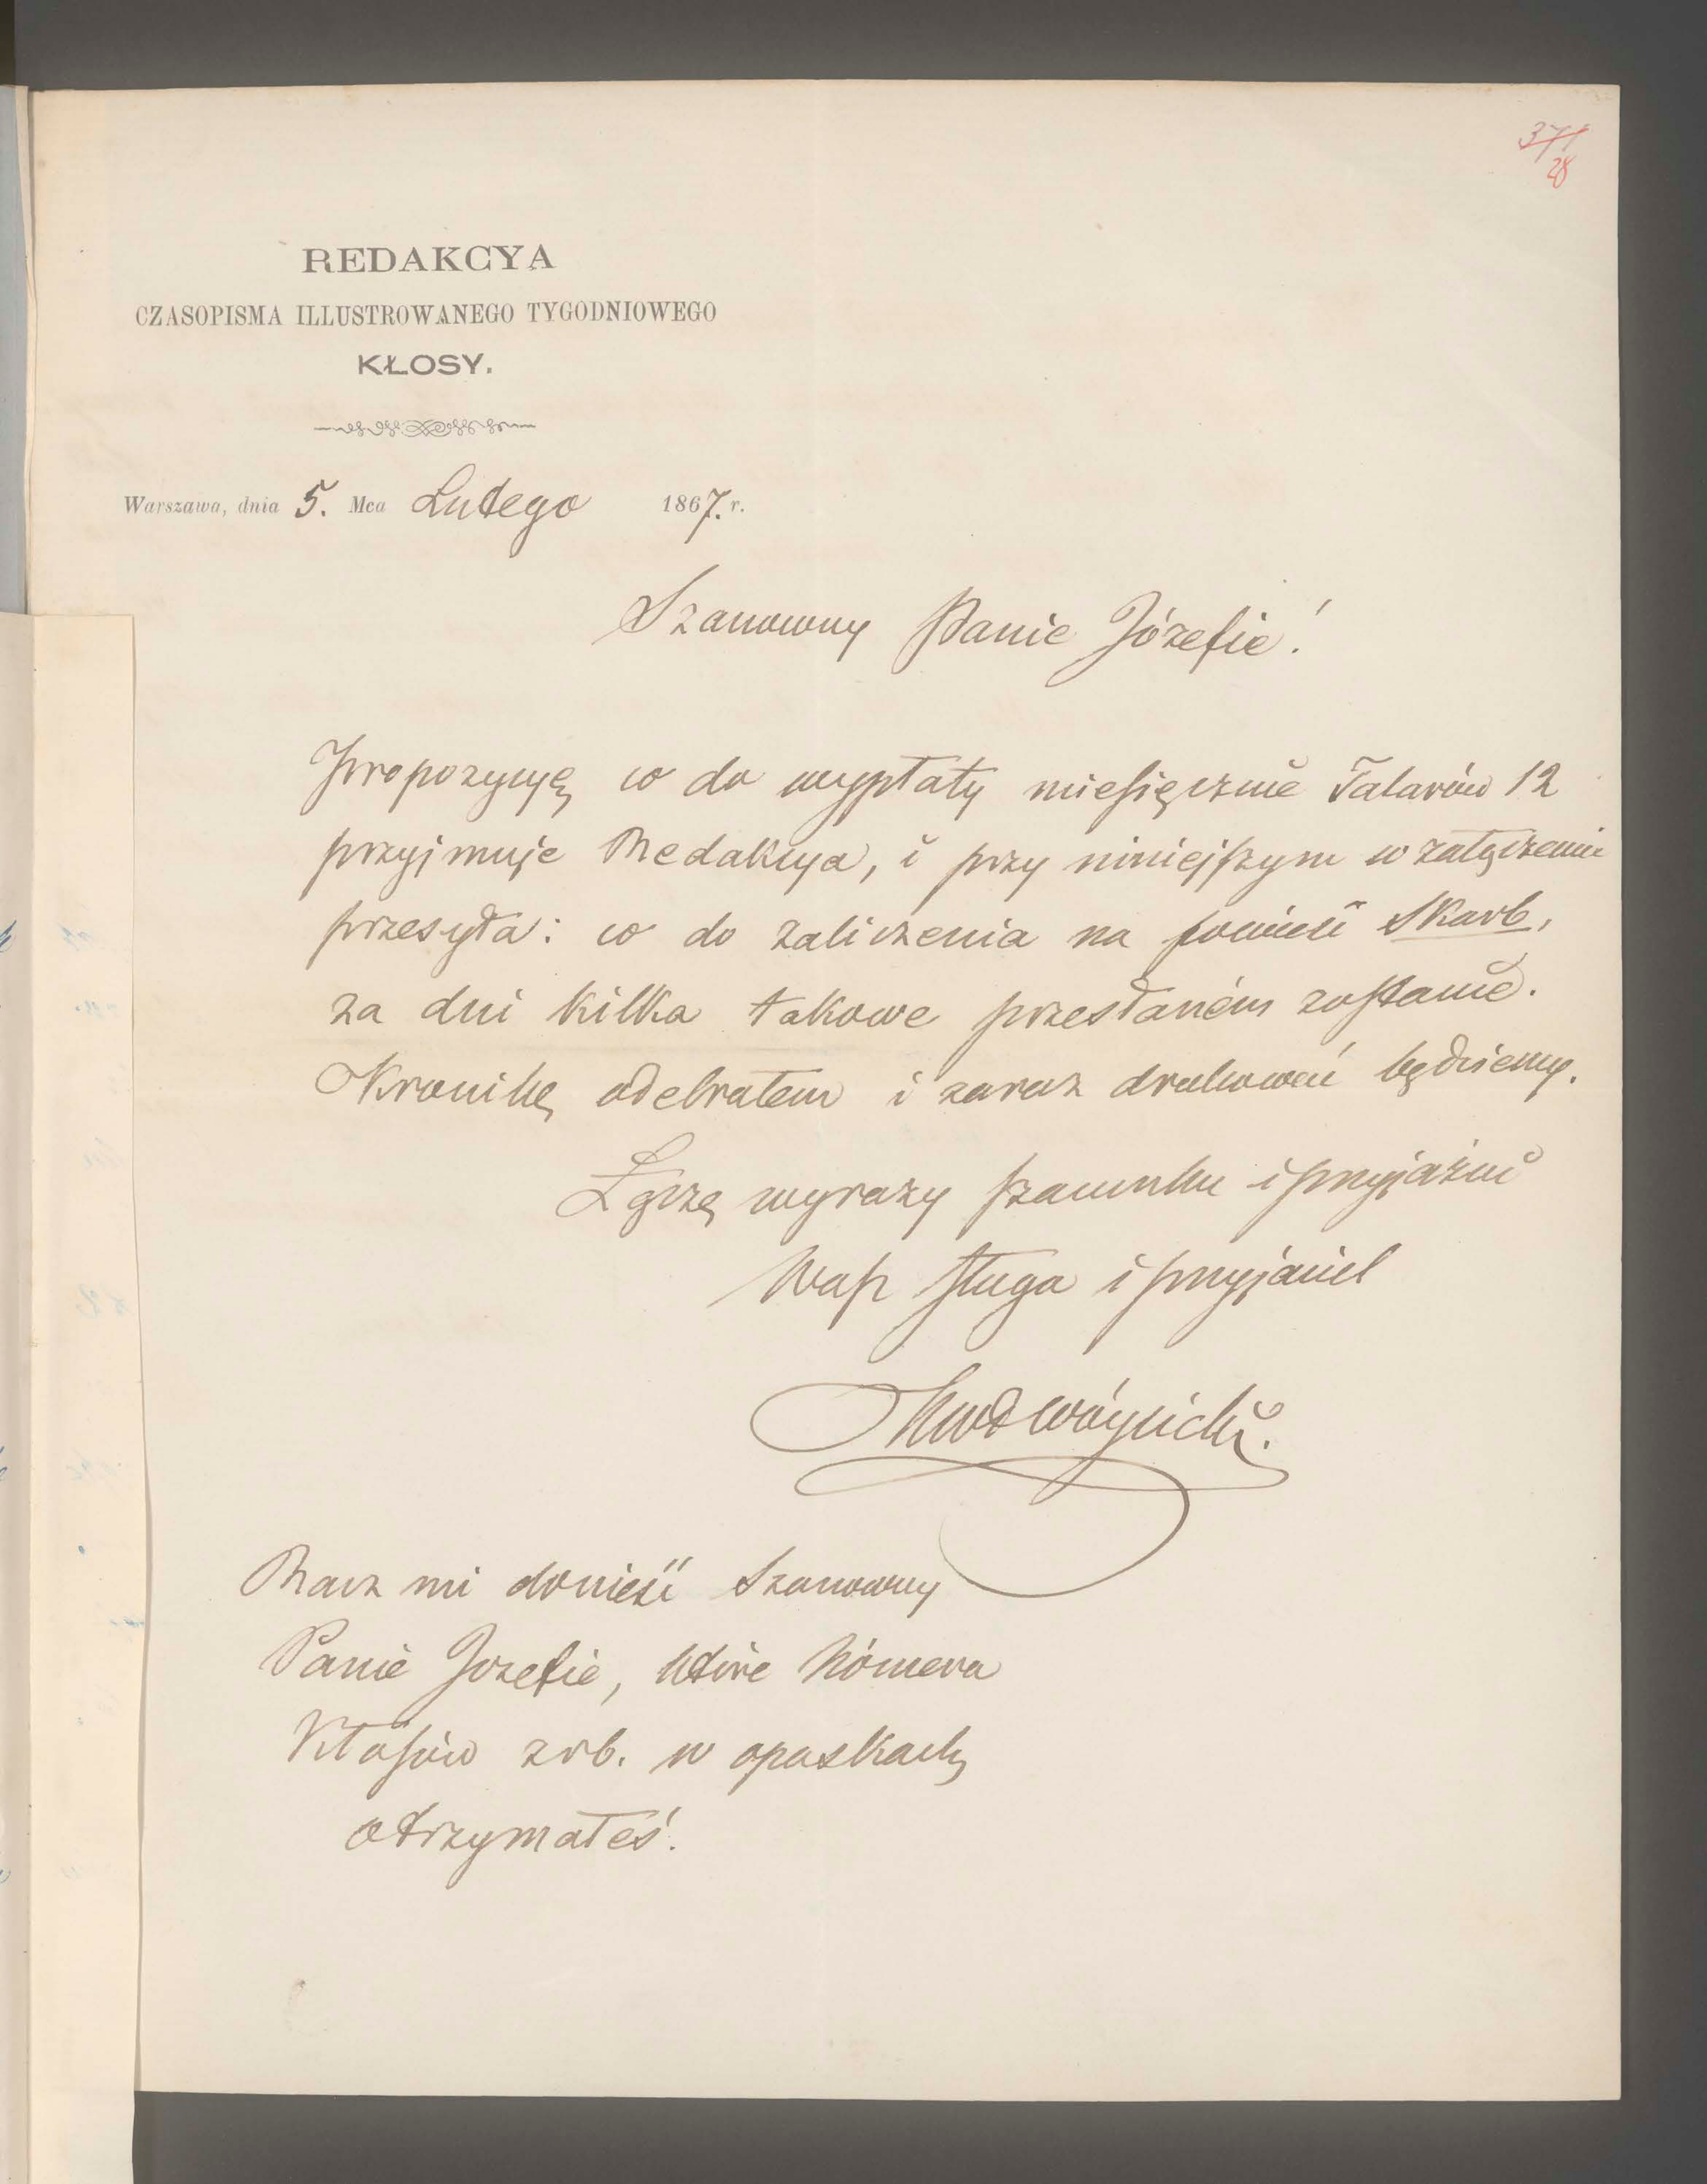 371
28
REDAKCYA
CZASOPISMA ILLUSTROWANEGO TYGODNIOWEGO
KŁOSY.
Warszawa, dnia 5. Mca Lutego 1867. r.
Szanowny Panie Józefie!
Propozycyę co do wypłaty miesięcznie Talarów 12
przyjmuje Redakcya, i przy niniejszym w załączeniu
przesyła: co do zaliczenia na powieść Skarb,
za dni kilka takowe przesłaném zostanie.
Kronikę odebrałem i zaraz drukować będziemy.
Łączę wyrazy szacunku i przyjaźni
Wasz sługa i przyjaciel
KWł Wóycicki.
Racz mi donieść Szanowny
Panie Jozefie, które Nómera
Kłosów zrb. w opaskach
otrzymałeś.